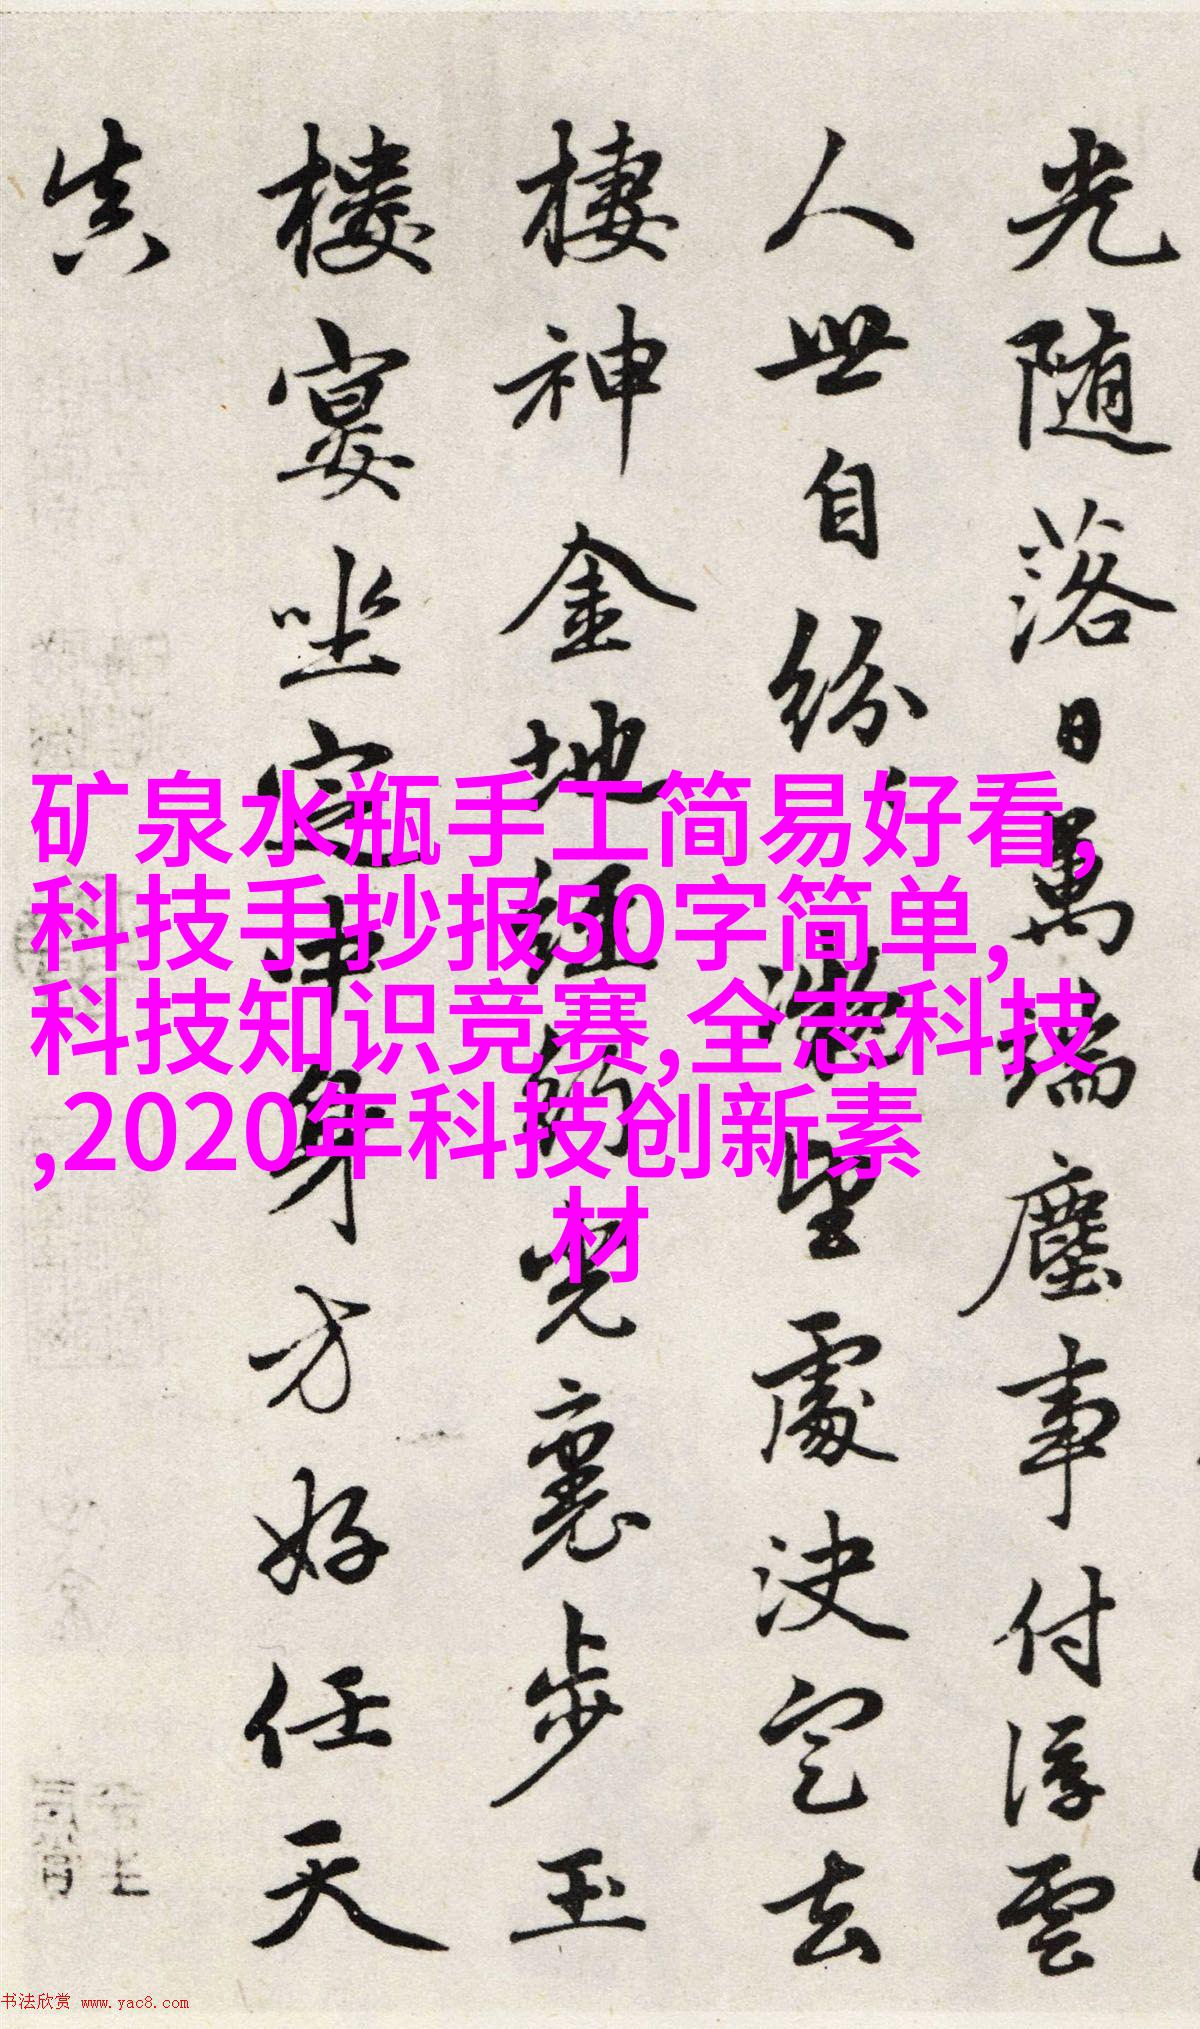 光随落日萬端塵事付浮雲
人世自紛紛
望處決定去
棲神金地經
光裏步玉
樓宴坐定中身方好任天
真
矿泉水瓶手工简易好看,
科技手抄报50字简单,
科技知识竞赛,全志科技
,2020年科技创新素
材
书法欣赏 www.yac8.com